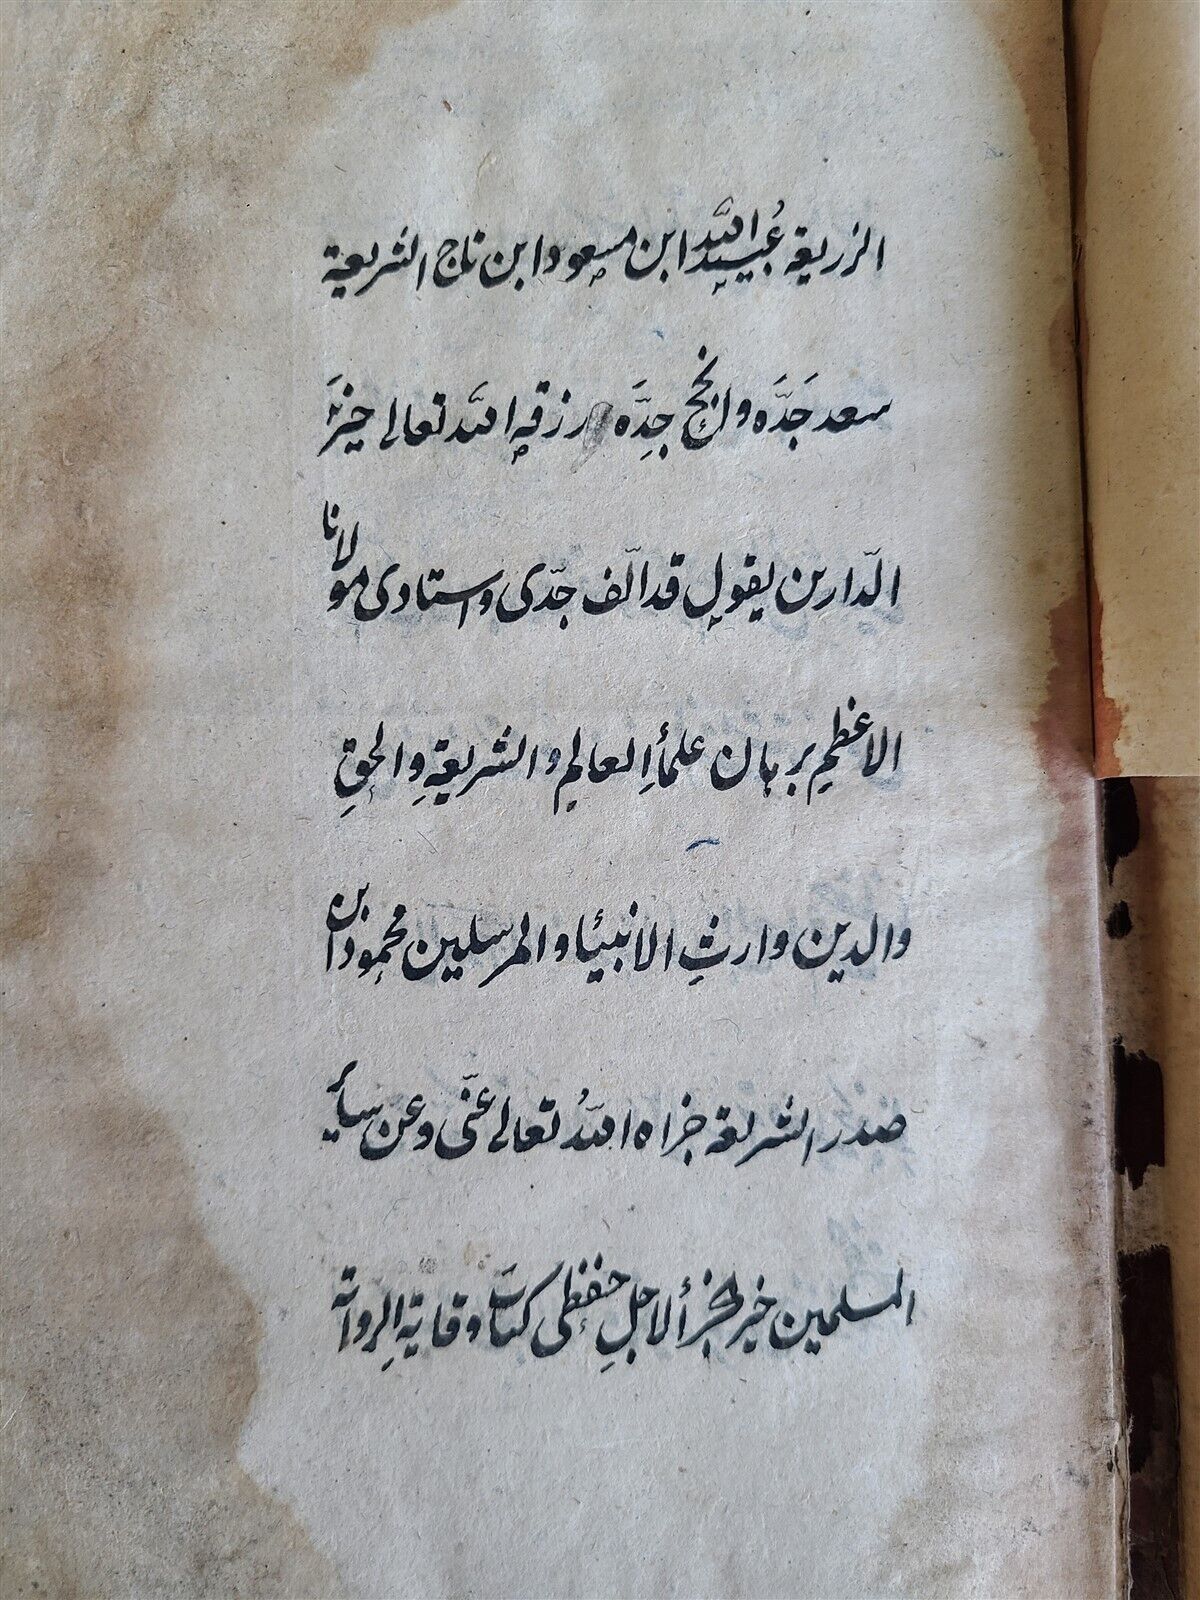 الزريعة عُبيد اللّه ابن مسعود ابن تاج الشريعة
سعد جَدَّه وانجح جِدَّه رزقه اللّه تعالى خيرَ
الدّارين يقول قد الّف جدّى واستادى مولانا
الاعظم برهان علمأِ العالم والشريعةِ والحقِ
والدين وارثِ الانبئا والمرسلين محمود ابن
صدر الشريعة جزاه اللّهُ تعالى عنّى وعن سائر
المسلمين خير الجزأ لاجلِ حفظى كتابَ وقايةِ الرواية